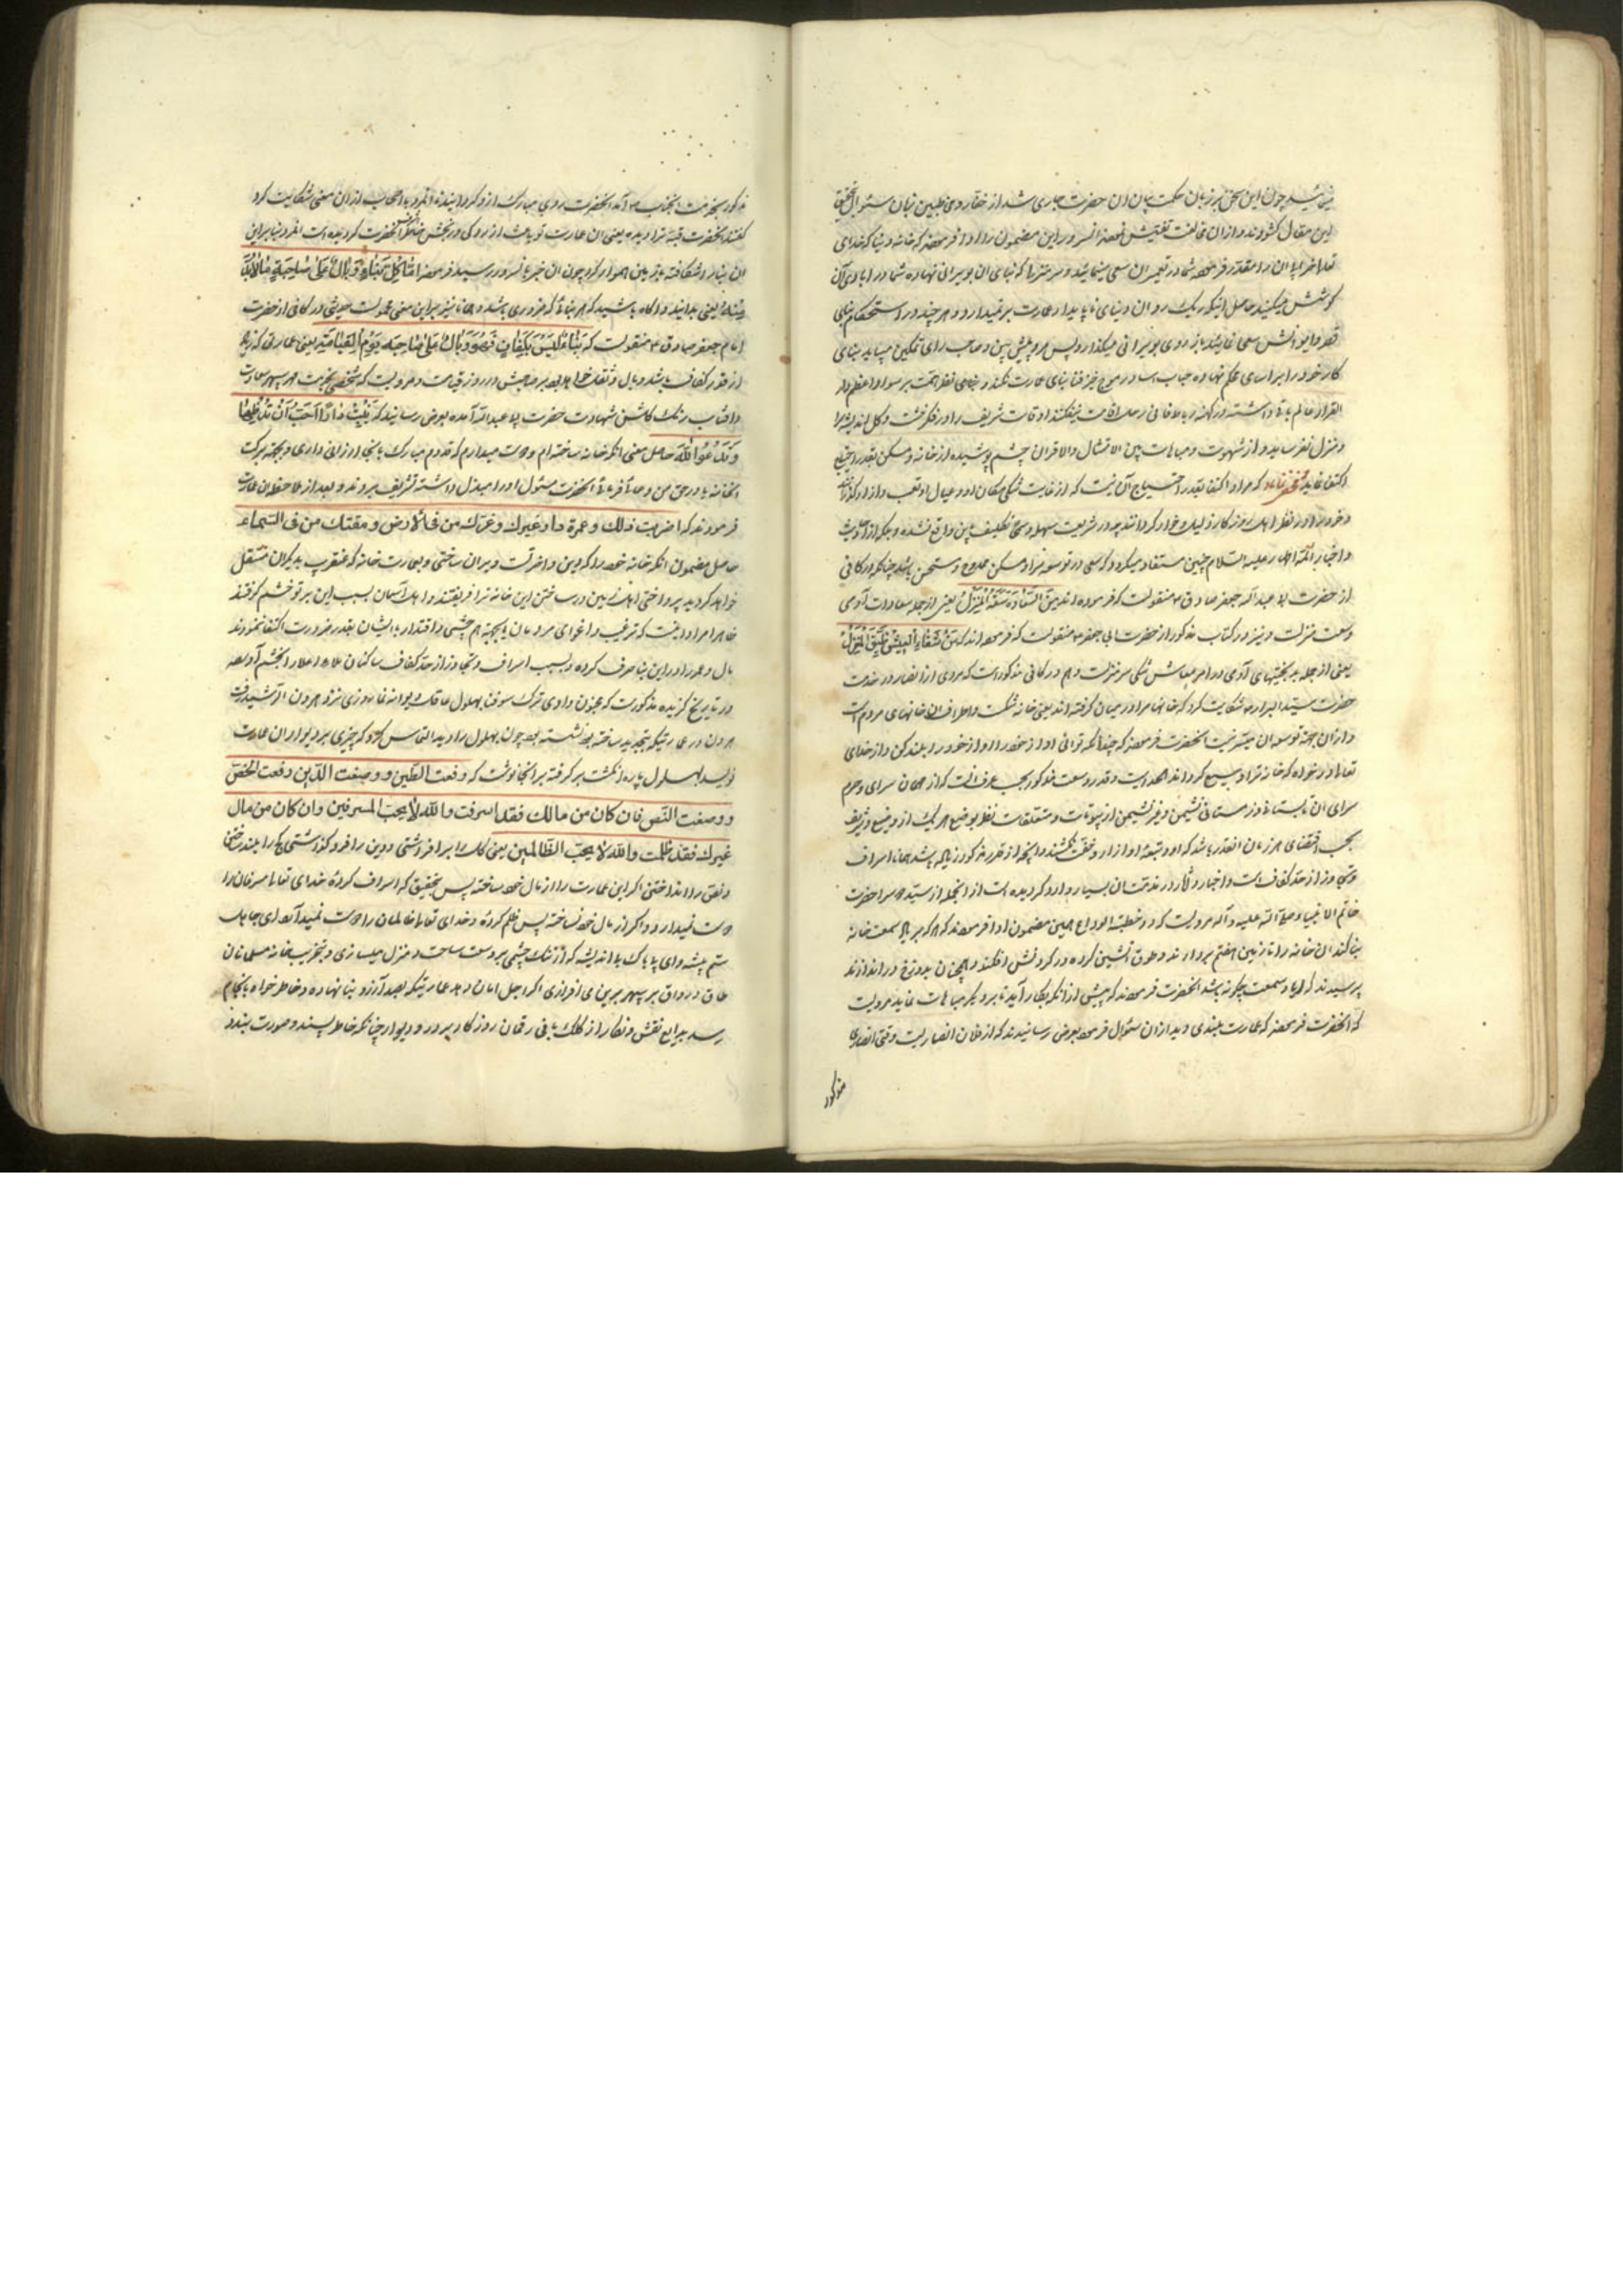 چون این سخن بر زبان حکمت بیان ان حضرت جاری شد از حقار رومی طلبین زبان سئوال تحقیق
این مقال کشودند و ازان مخالفت تفتیش نمودند انسرور این مضمون را ادا فرمودند که خانه دنیا که خدای
تعالی خراپا ان را مقدر فرموده شما در تعمیر ان سعی مینمائید و سر منزلرا که بنای ان بویرانی نهاده شما در ابادی آن
کوشش میکنید حاصل اینکه ریک روان دنیای ناپایدار عمارت بر نمیدارد و هر چند در استحکام بنای
قصر و ایوانش سعی نمایند باز روی بویرانی میکذارد پس مرد پیش بین و صاحب رای
کار خود را بر اساس محکم نهاده حباب اسا در موج خیز فنا بنای عمارت نکند و بنای نظر همت بر سواد اعظم دار
القرار عالم باقی داشته در کهنه رباط فانی رحل اقامت نیفکند اوقات شریف را در فکر خشت و کل
و منزل نفرساید و از شهوت و مباهات بین الامثال والاقران چشم پوشیده از خانه و مسکن بقدر احتیاج
اکتفا نماید مخفی نماند که مراد اکتفا بقدر احتیاج آن نیست که از غایت تنکی مکان او و عیال او تعب و ازار کذرانند
و خود را در نظر اهل روزکار ذلیل و خوار کردانند چه در شریعت سهله و سمحه تکلیف باین واقع نشده و بلکه از احادیث
و اخبار ائمه اطهار علیهم السلام چنین مستفاد میکردد که سعی در توسعه منزل و مسکن ممدوح و مستحسن باشد چنانکه در کافی
از حضرت ابی عبدالله جعفر صادق ع منقولست که فرموده اند مِنَ السَّعَادَةِ سَعَةُ الْمَنْزِلِ یعنی از جمله سعادات آدمی
وسعت منزلست و نیز در کتاب مذکور از حضرت ابی جعفر ع منقولست که فرموده اند که مِنْ شَقَاءِ الْعَیْشِ ضِیقُ الْمَنْزِلِ
یعنی از جمله بدبختیهای آدمی در امر معاش تنکی سر منزلست و هم در کافی مذکور است که مردی از انصار در خدمت
حضرت سید ابرار ص شکایت کرد که خانها مرا در میان کرفته اند یعنی خانه تنکست و اطراف ان خانهای مردم است
و ازان جهة توسعه ان میسر نیست انحضرت فرموده که چندانکه توانی اواز خود را بلند کن و از خدای
تعالی درخواه که خانه ترا وسیع کرداند الحدیث و قدر وسعت مذکور بحسب عرف انست که از همان سرای و حرم
سرای ان تابستانی و زمستانی نشیمن و غیر نشیمن از بیوتات و متعلقات نظر بوضع هر یک از وضیع و شریف
بحسب اقتضای هر زمان انقدر باشد که او و تبعه او ازار و خفت نکشند و انچه از قدر مذکور زیاده باشد همانا اسراف
و تجاوز از حد کفاف است و اخبار و آثار در مذمت ان بسیار وارد کردیده است از انجمله از سید دو سرا حضرت
خاتم الانبیا صلی الله علیه و آله مرویست که در خطبه الوداع همین مضمون ادا فرمودند که هر که بریا و سمعت خانه
بنا کند ان خانه را تا زمین هفتم بردارند و طوق اتشین کرده در کردنش افکنند و همچنان بدوزخ در اندازند
پرسیدند که ریا و سمعت چکونه باشد انحضرت فرمودند که بیش از انکه بکار آید بنا برد و یکر مباهات نماید مرویست
که انحضرت فرموده که عمارت بلندی دید از ان سئوال فرمود بعرض رسانیدند که از فلان انصاریست وقتی انصاری
مذکور
مذکور بخدمت انجناب آمد انحضرت روی مبارک ازو کردانید انمرد با اصحاب از ان معنی شکایت کرد
کفتند انحضرت قبه ترا دیده یعنی ان عمارت تو باعث از روکی و رنجش خاطر انحضرت کردیده است انمرد بنا براین
ان بنا را شکافته با زمین هموار کرد چون ان خبر بانسرور رسید فرمود اَمَّا کُلُّ بِنَاءٍ وَبَالٌ عَلَی صَاحِبِهِ اِلَّا مَا لَابُدَّ
مِنْهُ یعنی بدانید و اکاه باشید که هر بنا که ضروری باشد و بنابراین معنی محمولست حدیثی در کافی از حضرت
امام جعفر صادق ع منقولست که کل بِنَاءٍ لَیْسَ بِکَفَافٍ فَهُوَ وَبَالٌ عَلَی صَاحِبِهِ یَوْمَ الْقِیَامَةِ یعنی عمارتی که زیاده
از قدر کفاف باشد وبال و ثقل خواهد بود بر صاحبش در روز قیامت و مرویست که شخصی بخدمت مهر سپهر سعادت
و افتاب رنک کاشن شهادت حضرت ابا عبدالله آمده بعرض رسانید که بَنَیْتُ دَارًا اُحِبُّ اَنْ تَدْخُلَهَا
وَتَدْعُوَ اللهَ حاصل معنی انکه خانه ساخته ام و دوست میدارم که قدوم مبارک بانجا ارزانی داری و بجهة برکت
انخانه بار در حق من دعا فرمائی انحضرت مسئول او را مبذول داشته تشریف بردند و بعد از ملاحظه ان عمارت
فرمودند که اخربت دارك و عمرت دار غیرك و غرّك من فی الارض و مقتك من فی السّماء
حاصل مضمون انکه خانه خود را که دین و اخرتست ویران ساختی و بعمارت خانه که عنقریب بدیکران منتقل
خواهد کردید پرداختی اهل زمین در ساختن این خانه ترا فریفتند و اهل آسمان بسبب این بر تو خشم کرفتند
ظاهرا مراد انست که ترغیب و اغوای مردمان یا بجهة هم چشمی و اقتدار با ایشان بقدر ضرورت اکتفا ننمودند
مال و عمر را در این بنا صرف کرده و بسبب اسراف و تجاوز از حد کفاف ساکنان ملاء اعلا را بخشم آورده
در تاریخ کزیده مذکورست که مجنون وادی ترک سوفنا بهلول عاقل دیوانه نما روزی نزد هرون الرشید رفت
هرون در عمارتیکه بتجدید ساخته بود نشسته بود چون بهلول را دید التماس کرد که چیزی بر دیوار ان عمارت
نویسد بهلول پاره زنکشت برکرفته بر انجا نوشت که رفعت الطّین و وضعت الدّین رفعت الجصّ
و وضعت النّص فان کان من مالك فقد اسرفت والله لا یحبّ المسرفین وان کان من مال
غیرك فقد ظلمت والله لا یحبّ الظّالمین یعنی کل را بر افراشتی و دین را فرو کذاشتی کچ را بلند ساختی
و نص را انداختی اکر این عمارت را از مال خود ساخته پس بتحقیق که اسراف کرده و خدای تعالی مسرفان را
دوست نمیدارد و اکر از مال خود نساخته پس ظلم کرده و خدای تعالی ظالمان را دوست نمیدارد ای جاهل
ستم پیشه و ای بیباک بد اندیشه که از تنک چشمی بر وسعت ساحت و منزل میسازی و بتخریب خانه مسلمانان
طاق و رواق بر سپهر برین می افرازی اکر اجل امان دهد عمارتیکه بصد آرزو بنا نهاده و خاطر خواه بانجام
رسد بدایع نقش و نکار از کلک مانی رقمان روزکار بر در و دیوار چنانکه خاطر پسند و صورت بندد